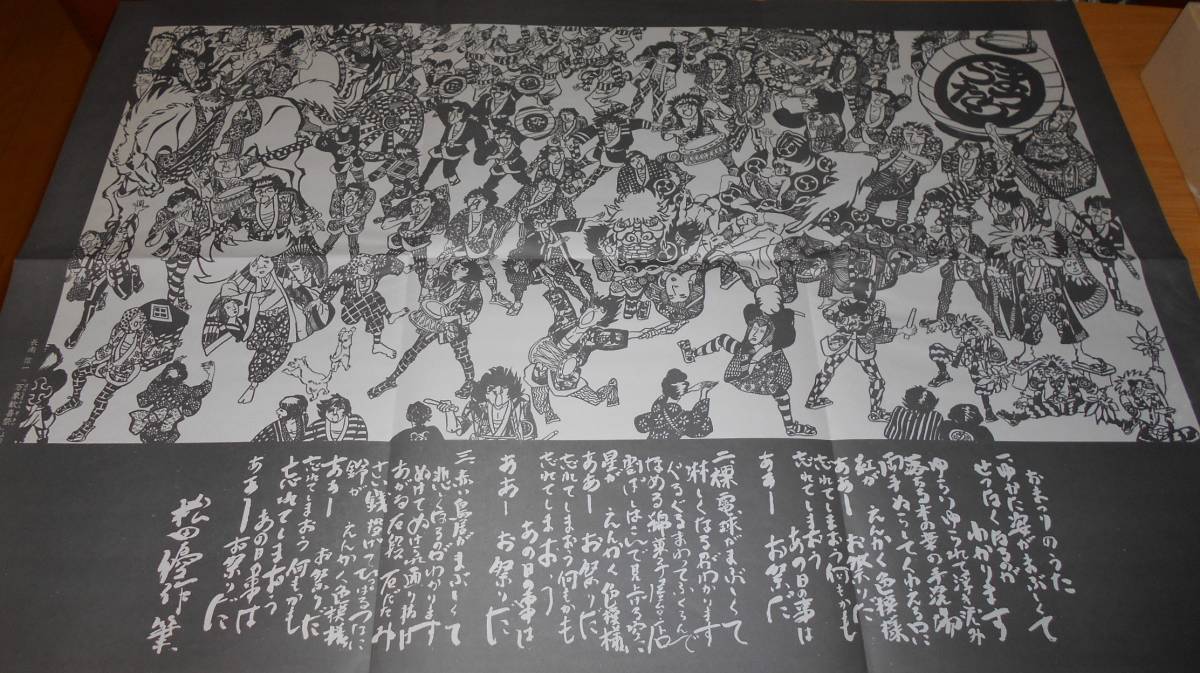 おまつりのうた
一、ゆかた姿がまぶしくて
せつなくなるのが
わかります
ゆらりゆられて浮き沈み
落ちる木の葉の
雨にぬらしてくわえる
紅が えんかく色模様
ああー お祭りだ
忘れてしまおう何もかも
忘れてしまおう
あの日の事は
ああー お祭りだ
二、裸電球がまぶしくて
淋しくなる君がわかります
ぐるぐるまわってふくらんで
綿菓子
割ばしはこんで見上げる空に
星が えんかく色模様
ああー お祭りだ
忘れてしまおう何もかも
忘れてしまおう
あの日の事は
ああー お祭りだ
三、赤い鳥居がまぶしくて
悲しくなる君がわかります
ぬけてぬけられぬ通り抜け
あがる石段 石だたみ
さい銭投げてひっぱるつなに
鈴が えんかく色模様
ああー お祭りだ
忘れてしまおう 何もかも
忘れてしまおう
あの日の事は
ああー お祭りだ
松田優作 筆